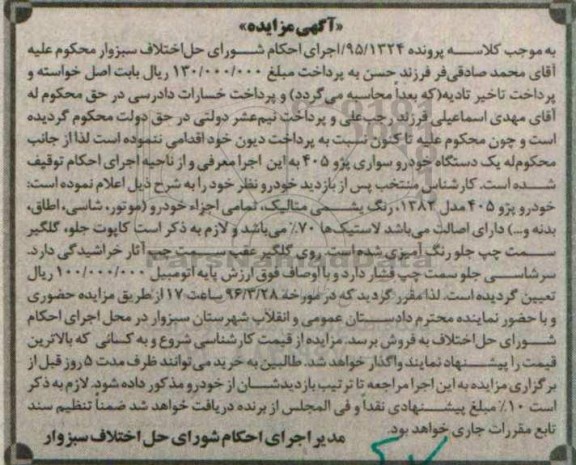 «آگهی مزایده»
به موجب کلاسه پرونده ۹۵/۱۳۲۴/اجرای احکام شورای حل اختلاف سبزوار محکوم علیه
آقای محمد صادقی فر فرزند حسن به پرداخت مبلغ ۱۳۰/۰۰۰/۰۰۰ ریال بابت اصل خواسته و
پرداخت تاخیر تادیه(که بعداً محاسبه می گردد) و پرداخت خسارات دادرسی در حق محکوم له
آقای مهدی اسماعیلی فرزند رجب علی و پرداخت نیم عشر دولتی در حق دولت محکوم گردیده
است و چون محکوم علیه تاکنون نسبت به پرداخت دیون خود اقدامی ننموده است لذا از جانب
محکوم له یک دستگاه خودرو سواری پژو ۴۰۵ به این اجرا معرفی و از ناحیه اجرای احکام توقیف
شده است. کارشناس منتخب پس از بازدید خودرو نظر خود را به شرح ذیل اعلام نموده است:
خودرو پژو ۴۰۵ مدل ۱۳۸۲، رنگ یشمی متالیک، تمامی اجزاء خودرو (موتور، شاسی، اطاق،
بدنه و...) دارای اصالت می باشد لاستیک ها ۷۰٪ می باشد و لازم به ذکر است کاپوت جلو، گلگیر
سمت چپ جلو رنگ آمیزی شده است. روی گلگیر عقب سمت چپ آثار خراشیدگی دارد.
سرشاسی جلو سمت چپ فشار دارد و با اوصاف فوق ارزش پایه اتومبیل ۱۰۰/۰۰۰/۰۰۰ ریال
تعیین گردیده است. لذا مقرر گردید که در مورخه ۹۶/۳/۲۸ ساعت ۱۷ از طریق مزایده حضوری
و با حضور نماینده محترم دادستان عمومی و انقلاب شهرستان سبزوار در محل اجرای احکام
شورای حل اختلاف به فروش برسد. مزایده از قیمت کارشناسی شروع و به کسانی که بالاترین
قیمت را پیشنهاد نمایند واگذار خواهد شد. طالبین به خرید می توانند ظرف مدت ۵ روز قبل از
برگزاری مزایده به این اجرا مراجعه تا ترتیب بازدیدشان از خودرو مذکور داده شود. لازم به ذکر
است ۱۰٪ مبلغ پیشنهادی نقداً و فی المجلس از برنده دریافت خواهد شد ضمناً تنظیم سند
تابع مقررات جاری خواهد بود.
مدیر اجرای احکام شورای حل اختلاف سبزوار